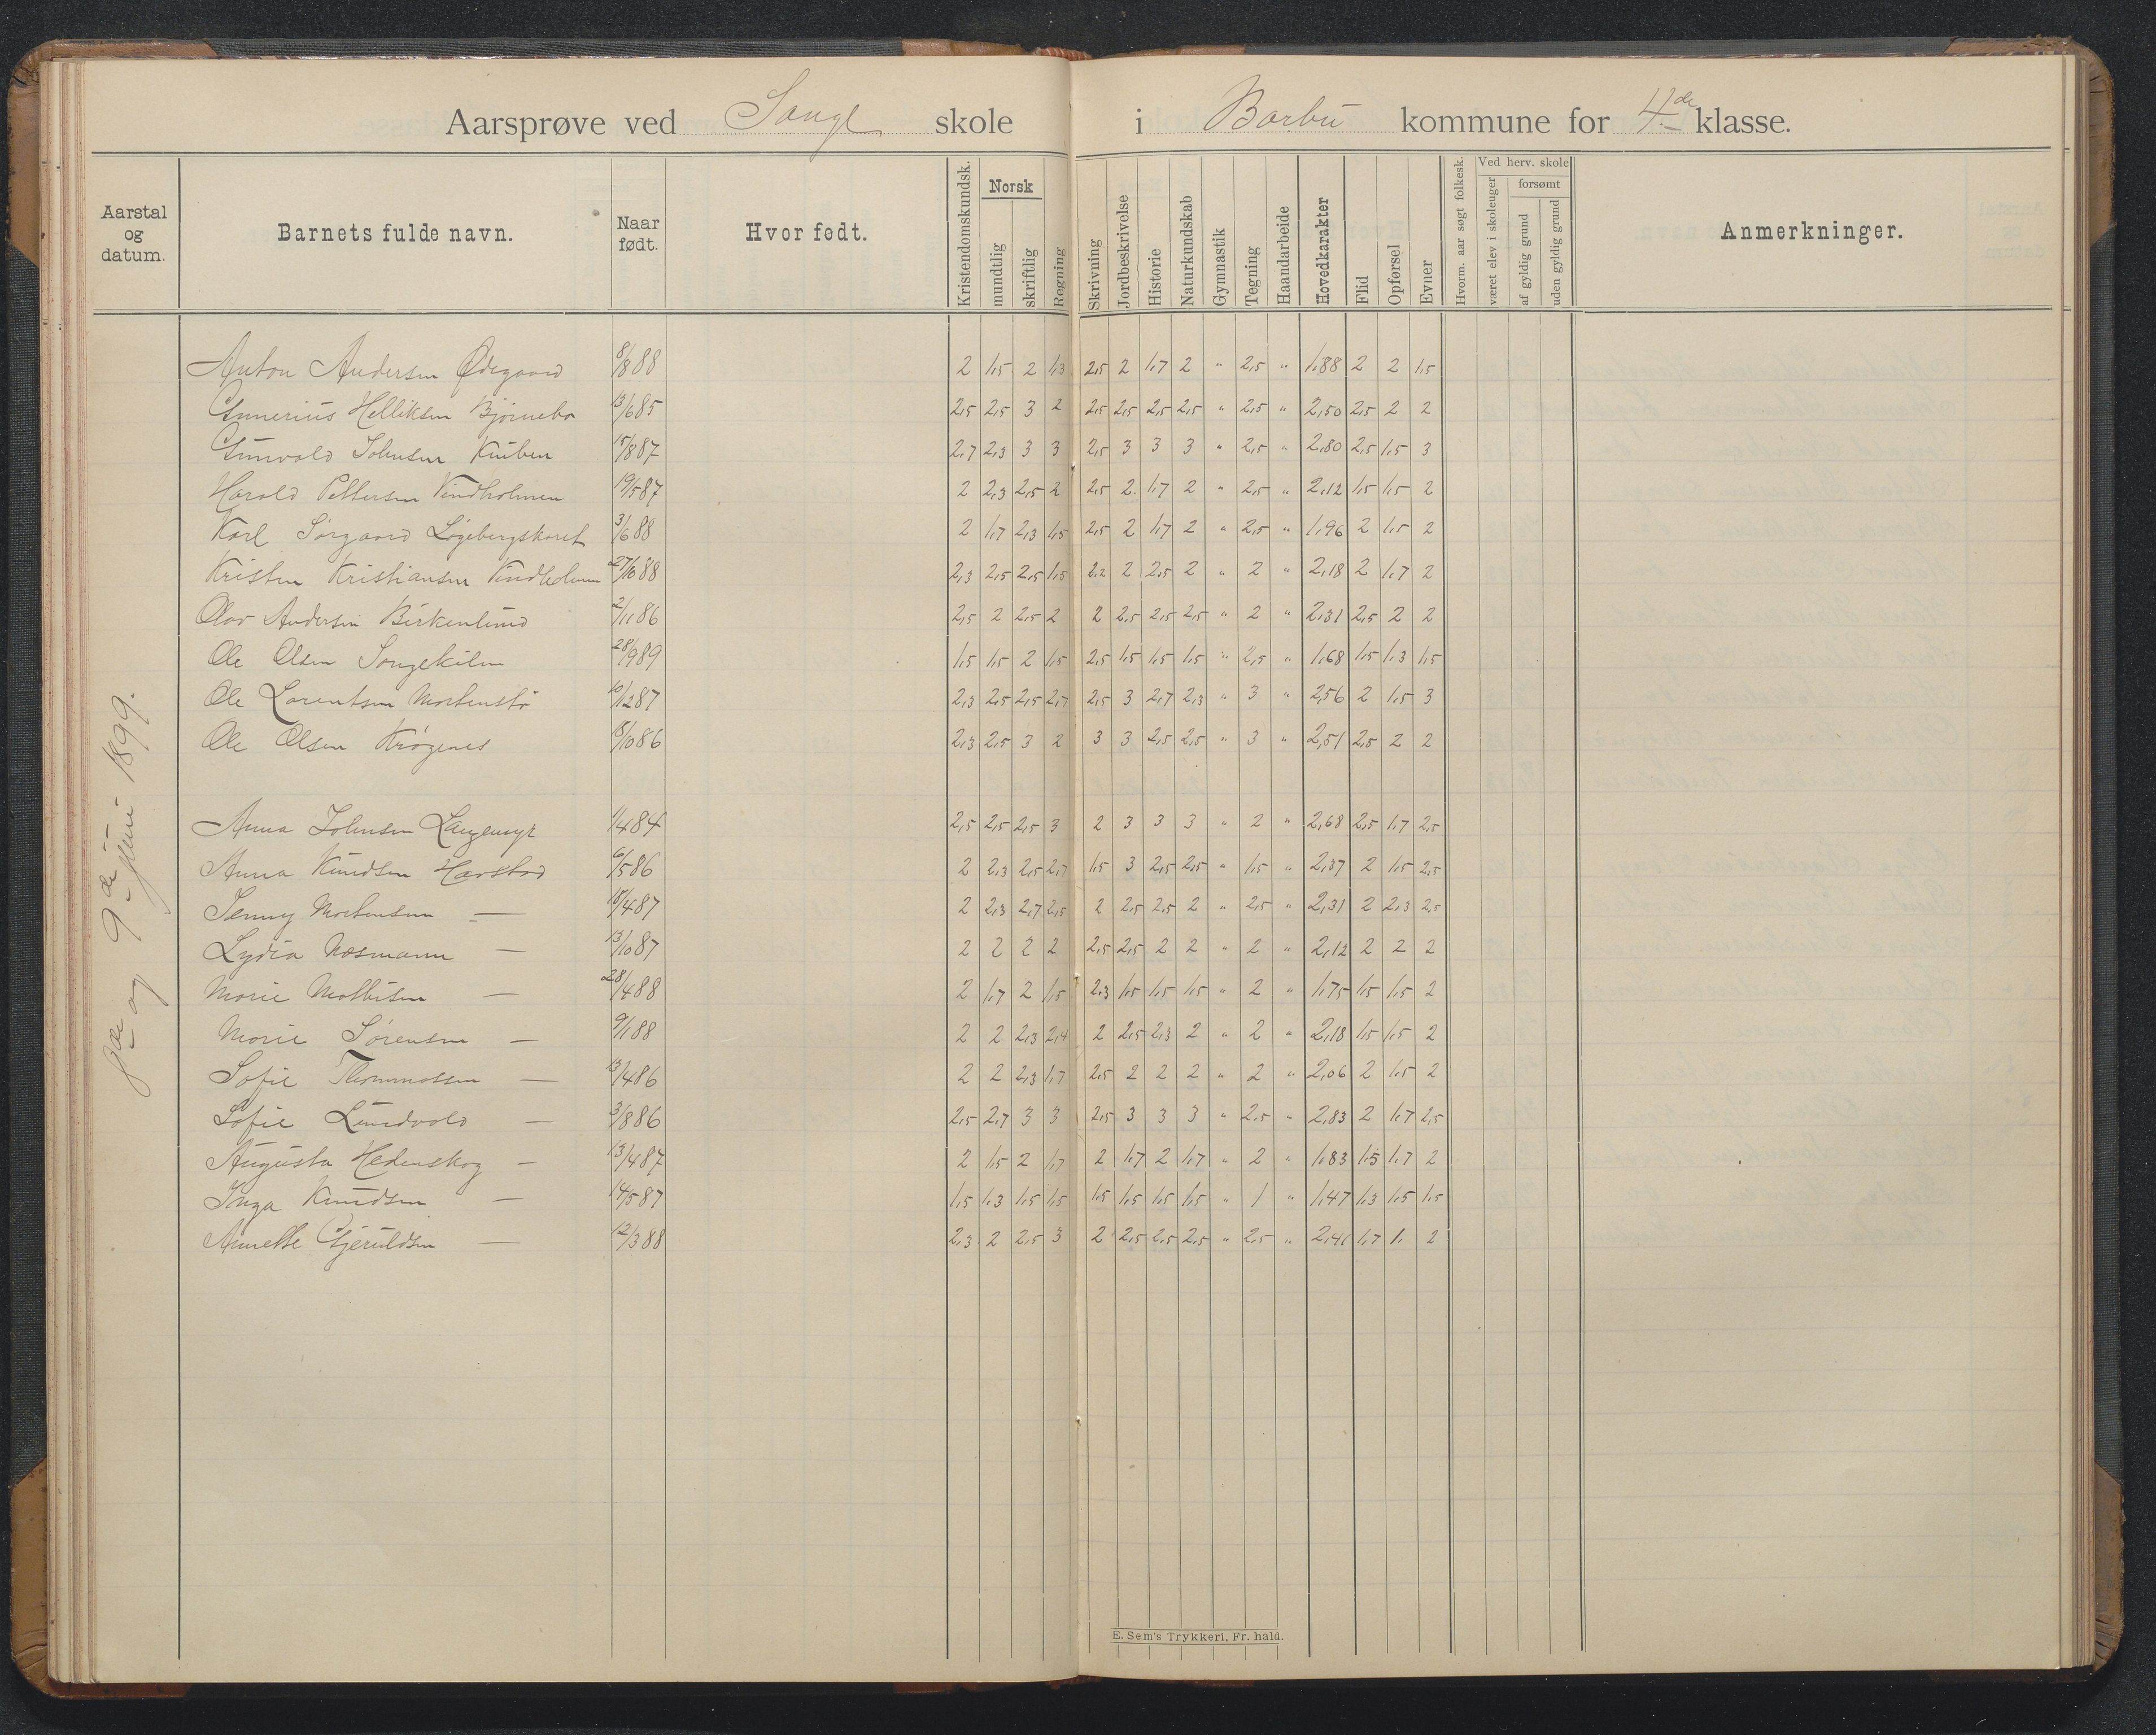 Aarsprøve ved Songe skole i Barbu kommune for 4de klasse.
Aarstal og datum. Barnets fulde navn. Naar født. Hvor født. Kristendomskundsk. Norsk mundtlig skriftlig Regning Skrivning Jordbeskrivelse Historie Naturkundskab Gymnastik Tegning Haandarbeide Hovedkarakter Flid Opførsel Evner Hvorm. aar søgt folkesk. Ved herv. skole været elev i skoleuger forsømt af gyldig grund uden gyldig grund Anmerkninger.
8de og 9de juni 1899.
Anton Andersen Ødegaard 8/8 88 2 1,5 2 1,3 2,5 2 1,7 2 " 2,5 " 1,88 2 2 1,5
Gunerius Helliksen Bjørnebo 13/6 85 2,5 2,5 3 2 2,5 2,5 2,5 2,5 " 2,5 " 2,50 2,5 2 2
Gunvald Johnsen Kniben 15/8 87 2,7 2,3 3 3 2,5 3 3 3 " 2,5 " 2,80 2,5 1,5 3
Harald Pettersen Vindholmen 19/5 87 2 2,3 2,5 2 2,5 2 1,7 2 " 2,5 " 2,12 1,5 1,5 2
Karl Sørgaard Løgebergskaret 3/6 88 2 1,7 2,3 1,5 2,5 2 1,7 2 " 2,5 " 1,96 2 1,5 2
Kristen Kristiansen Vindholmen 27/10 88 2,3 2,5 2,5 1,5 2,2 2 2,5 2 " 2 " 2,18 2 1,7 2
Olav Andersen Birkenlund 2/11 86 2,5 2 2,5 2 2 2,5 2,5 2,5 " 2 " 2,31 2,5 2 2
Ole Olsen Songekilen 28/9 89 1,5 1,5 2 1,5 2,5 1,5 1,5 1,5 " 2,5 " 1,68 1,5 1,3 1,5
Ole Lorentsen Mortenstø 10/12 87 2,3 2,5 2,5 2,7 2,5 3 2,7 2,3 " 3 " 2,56 2 1,5 3
Ole Olsen Krøgenes 18/10 86 2,3 2,5 3 2 3 3 2,5 2,5 " 3 " 2,51 2,5 2 2
Anna Johnsen Langemyr 1/4 84 2,5 2,5 2,5 3 2 3 3 3 " 2 " 2,68 2,5 1,7 2,5
Anna Knudsen Harstad 6/5 86 2 2,3 2,5 2,7 1,5 3 2,5 2,5 " 1,5 " 2,37 2 1,5 2,5
Jenny Mortensen — 18/4 87 2 2,3 2,7 2,5 2 2,5 2,5 2 " 2,5 " 2,31 2 2,3 2,5
Lydia Mosmann — 13/10 87 2 2 2 2 2,5 2,5 2 2 " 2 " 2,12 2 2 2
Marie Mathisen — 28/4 88 2 1,7 2 1,5 2,3 1,5 1,5 1,5 " 2 " 1,75 1,5 1,5 2
Marie Sørensen — 9/1 88 2 2 2,3 2,4 2 2,5 2,3 2 " 2 " 2,18 1,5 1,5 2
Sofie Thommassen — 13/4 86 2 2 2,3 1,7 2,5 2 2 2 " 2 " 2,06 2 1,5 2
Sofie Lundvald — 3/8 86 2,5 2,7 3 3 2,5 3 3 3 " 2,5 " 2,83 2 1,7 2,5
Augusta Hedenskog — 13/4 87 2 1,5 2 1,7 2 1,7 2 1,7 " 2 " 1,83 1,5 1,7 2
Inga Knudsen — 14/5 87 1,5 1,3 1,5 1,5 1,5 1,5 1,5 1,5 " 1 " 1,47 1,3 1,5 1,5
Annette Gjeruldsen — 12/3 88 2,3 2 2,5 3 2 2,5 2,5 2,5 " 2,5 " 2,41 1,7 1. 2
E. Sem's Trykkeri, Fr. hald.